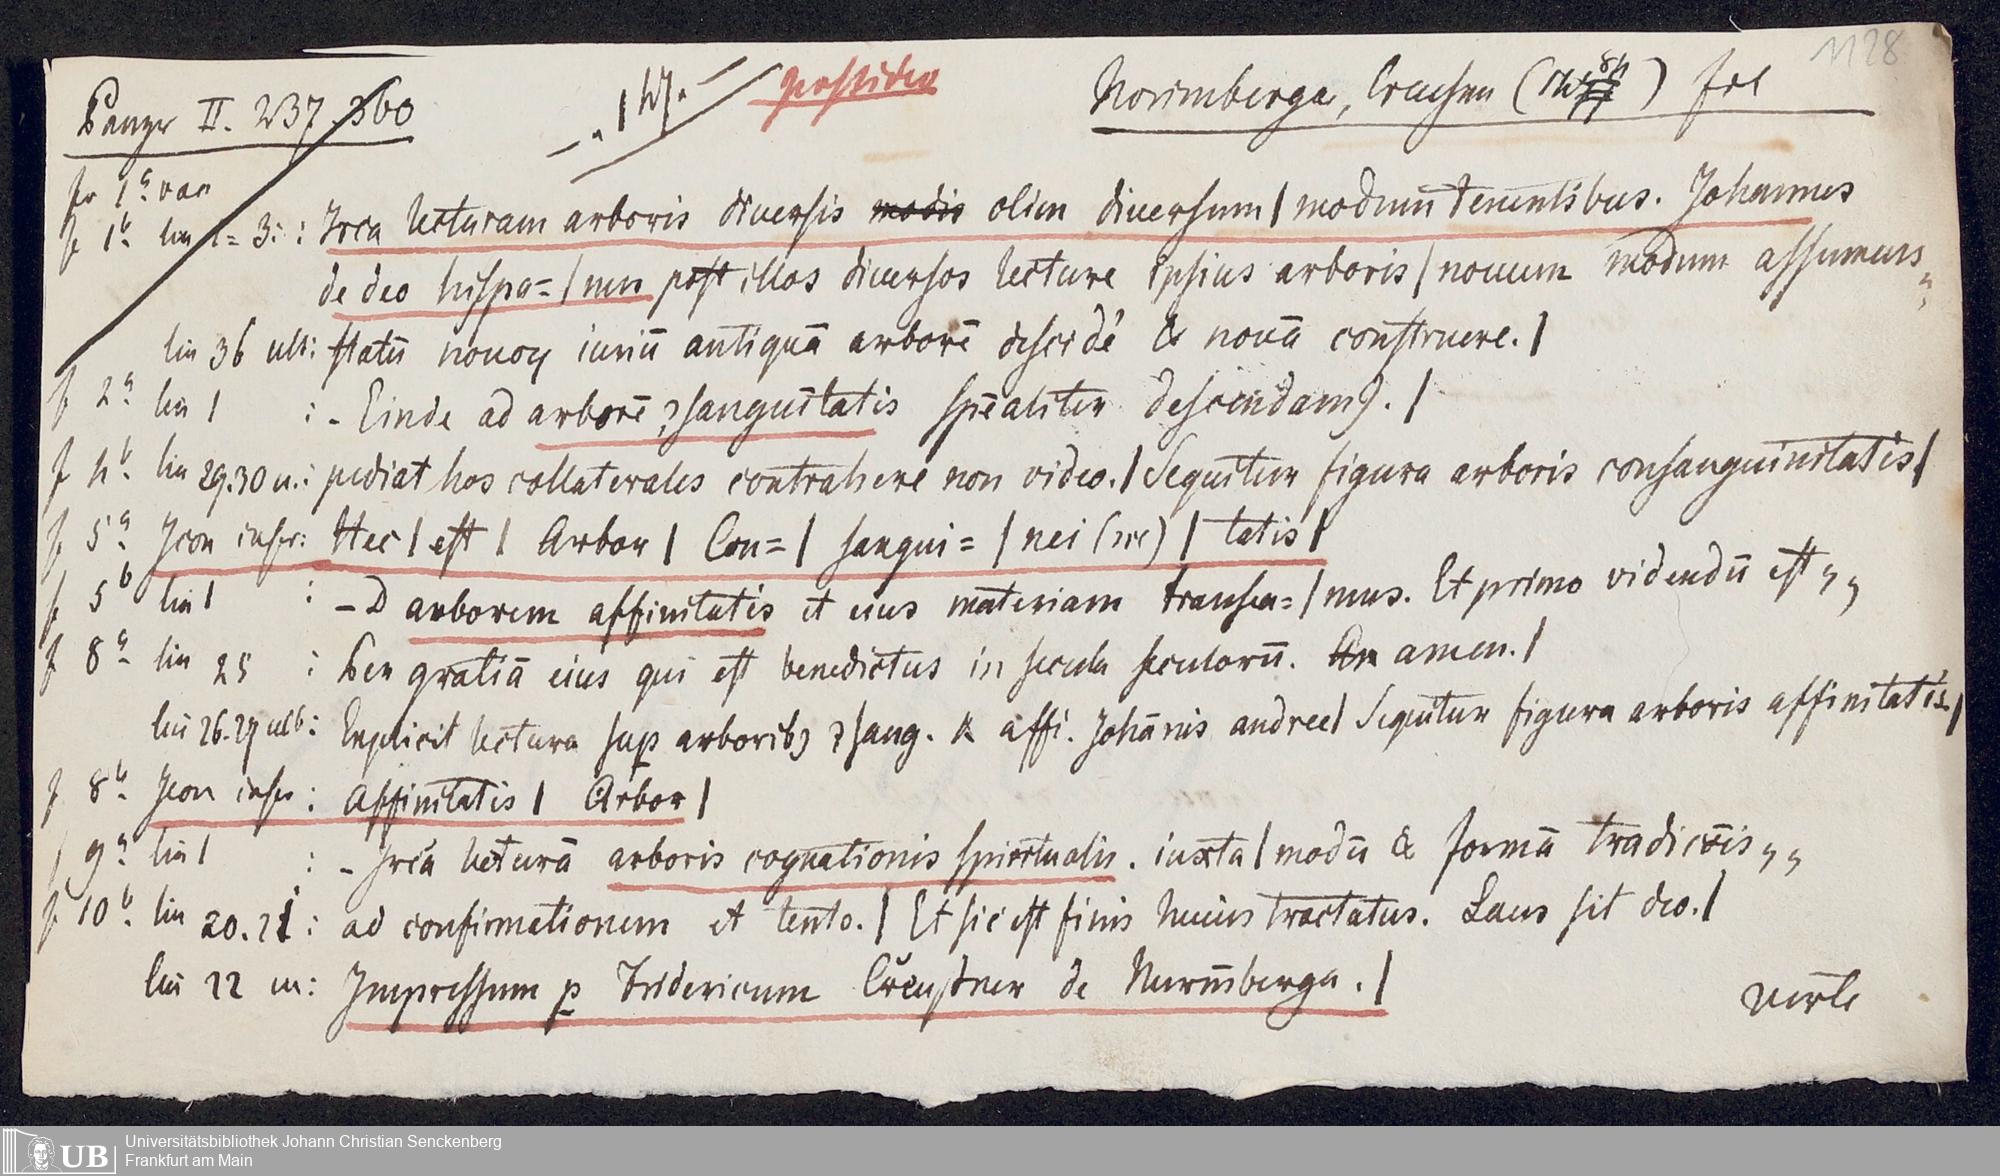 1128
Panzer II. 237. 360
possideo
Norimberga, Creusner ( 84 ) fol
fo 1a vac
f 1b lin 1=3: : Irca lecturam arboris diuersis modis olim diuersum | modum tenentibus. Johannes
de deo hispa= | nus post illos diuersos lecture ipsius arboris | nouum modum assumens
lin 36 ult: statū nouoꝝ iuriū antiquā arborē descidē & nouā construere. |
f 2a lin 1 : - Einde ad arborē ꝯsanguītatis spēaliter descendamꝰ. |
f 4b lin 29.30 u.: pediat hos collaterales contrahere non video. | Sequitur figura arboris consanguinitatis |
f 5a Icon infr: Hec | est | Arbor | Con= | sangui= | nei (sic) | tatis |
f 5b lin 1 : - D arborem affinitatis et eius materiam transea= | mus. Et primo videndū est „„
f 8a lin 25 : Per gratiā eius qui est benedictus in secula seculorū. An amen. |
lin 26.27 ult: Explicit lectura suꝑ arboribꝰ ꝯsang. & affi. Johānis andree | Sequitur figura arboris affinitatis |
f 8b Icon infr : Affinitatis | Arbor |
f 9a lin 1 : - Irca lecturā arboris cognationis spiritualis. iuxta | modū & formā tradicōis „„
f 10b lin 20.21 : ad confirmationem et tento. | Et sic est finis huius tractatus. Laus sit deo. |
lin 22 u: Impressum ꝑ Fridericum Creusner de Nurmberga. |
verte
UB
Universitätsbibliothek Johann Christian Senckenberg
Frankfurt am Main